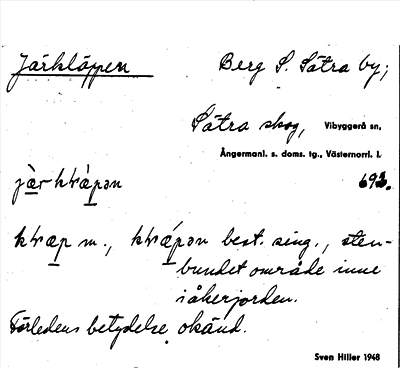 Järkläppen Berg S. Sätra by;
Sätra skog, Vibyggerå sn,
Ångermanl. s. doms. tg., Västernorrl. l.
693.
m., best. sing., sten-
bundet område inne
i åkerjorden.
Förledens betydelse okänd.
Sven Hiller 1948